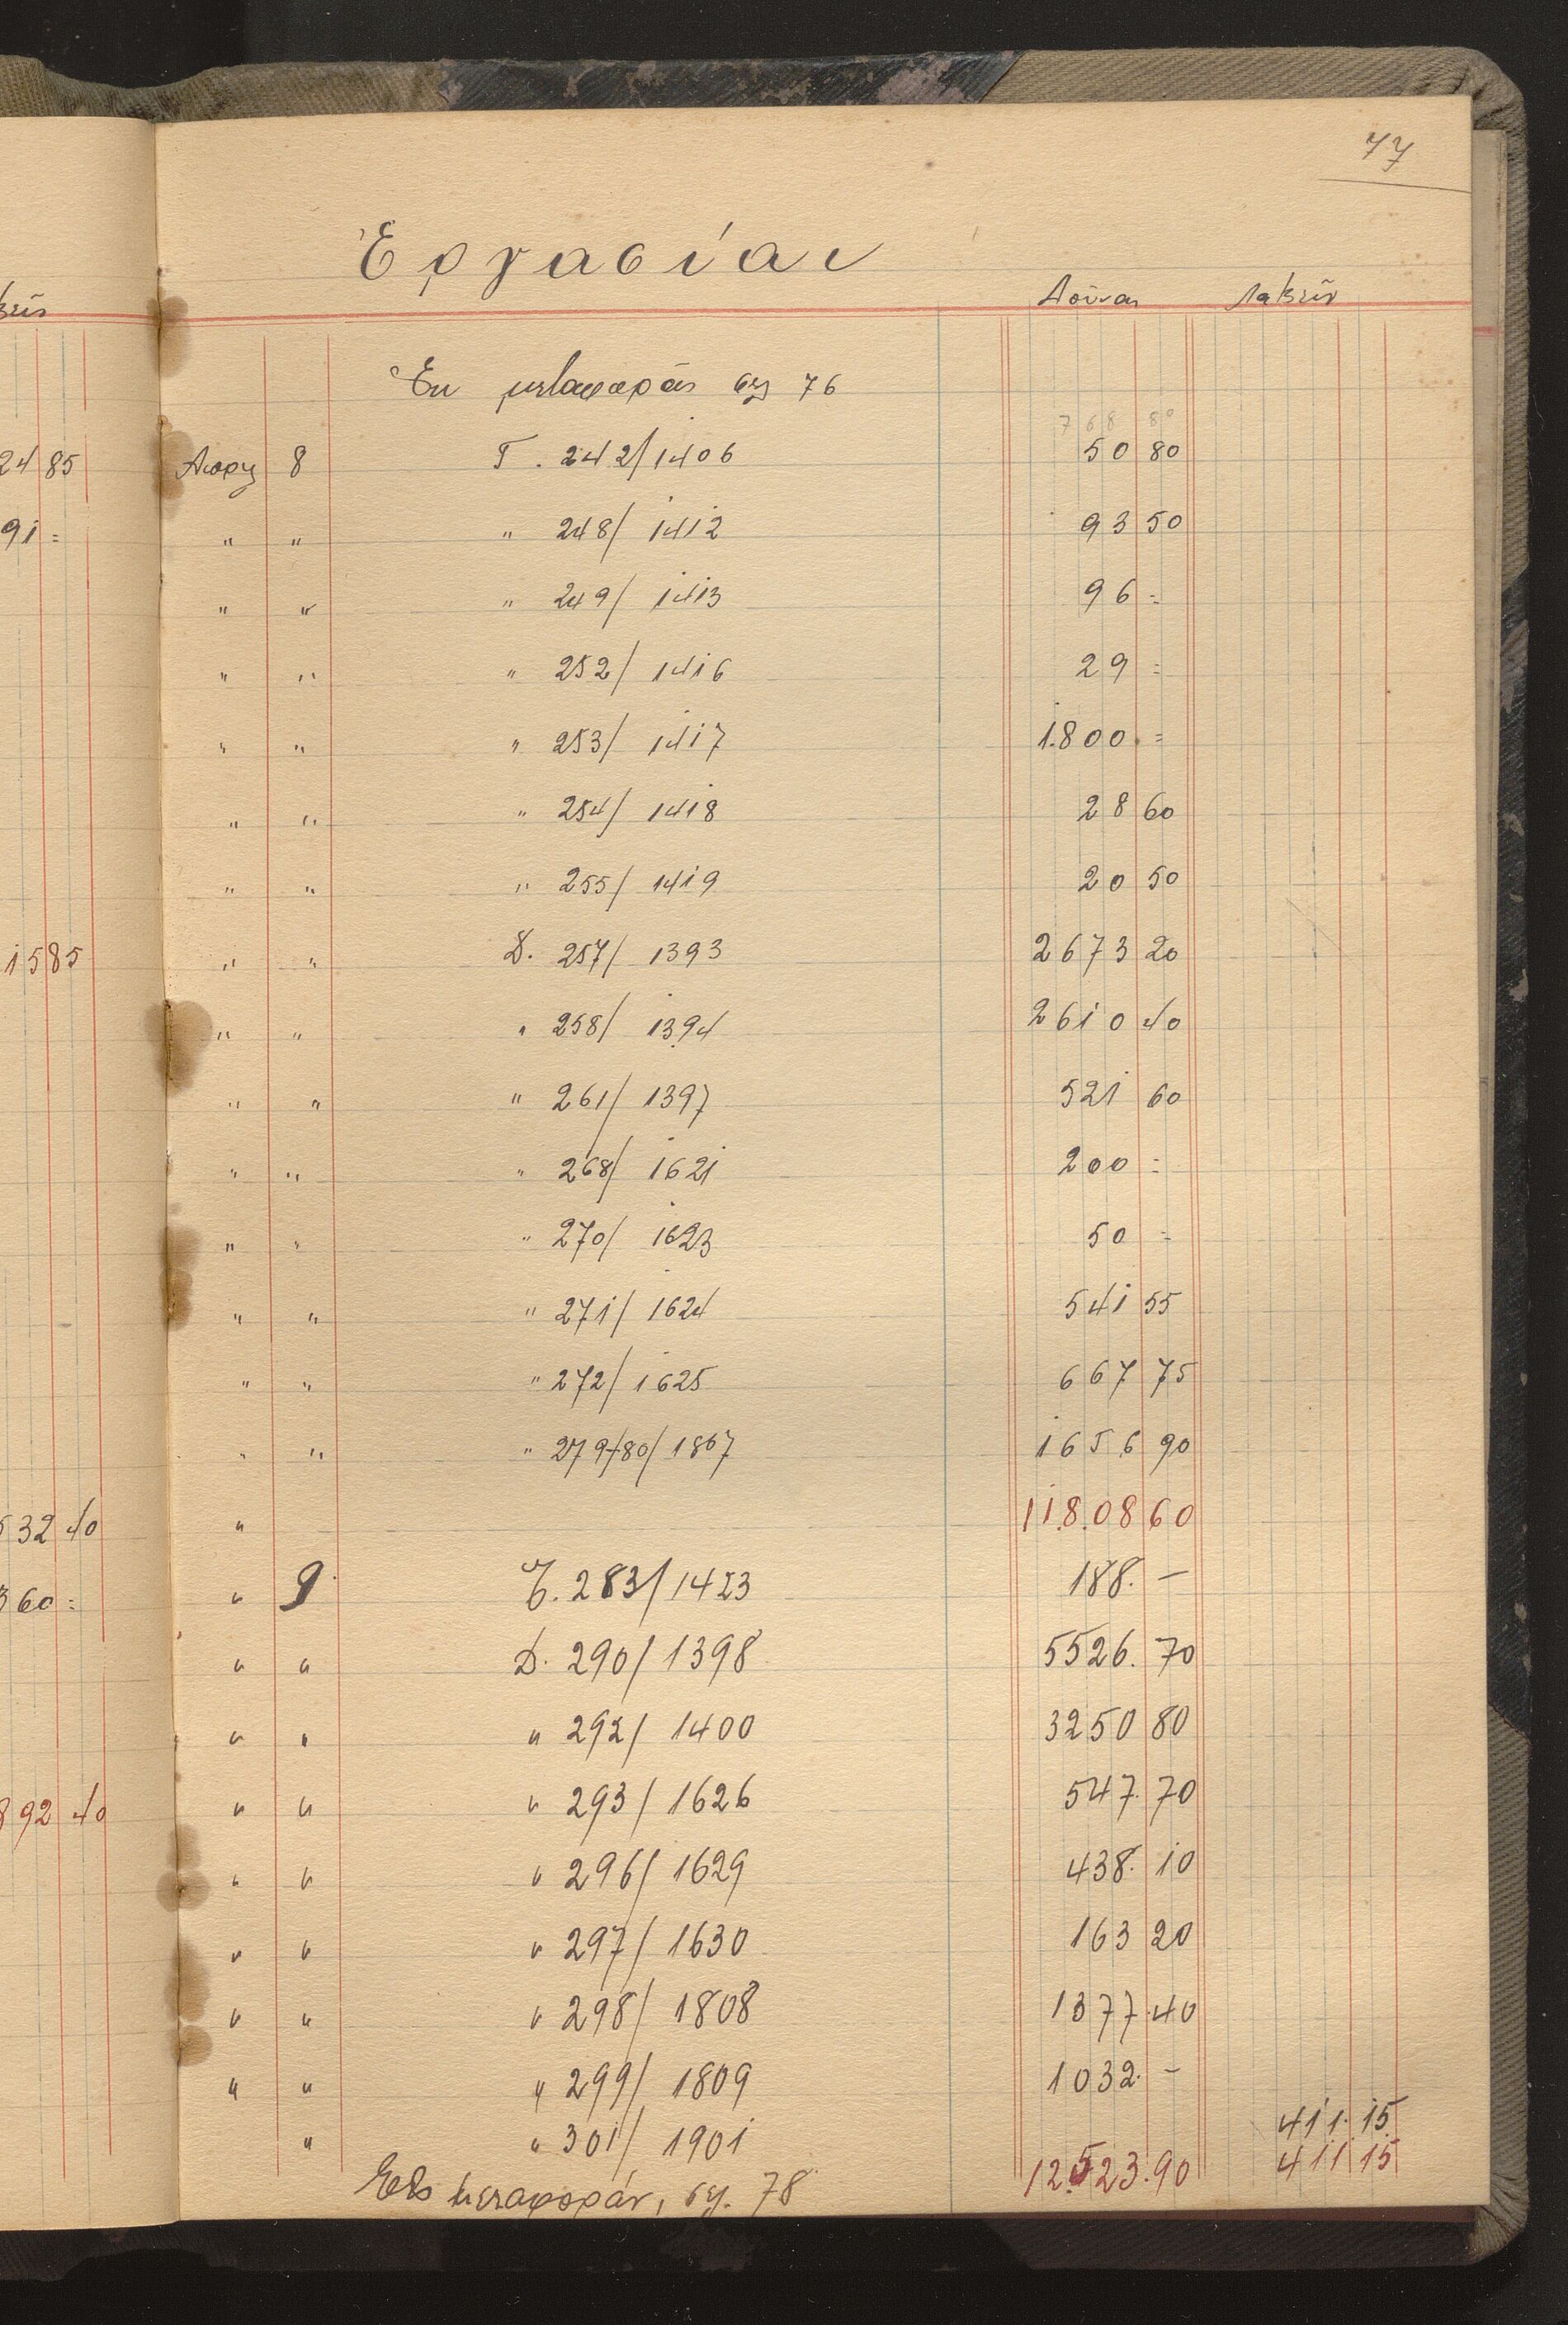 77
Ἐργασίαι
Δοῦναι Λαβεῖν
Ἐκ μεταφορᾶς σελ 76
768 80
Απρι 8 Τ. 242/1406 50 80
" " " 248/ 1412 93 50
" " " 249/ 1413 96 =
" " " 252/ 1416 29 =
" " " 253/ 1417 1.800 =
" " " 254/ 1418 28 60
" " " 255/ 1419 20 50
" " D. 257/ 1393 2673 20
" " " 258/ 1394 2610 40
" " " 261/ 1397 521 60
" " " 268/ 1621 200 =
" " " 270/ 1623 50 =
" " " 271/ 1624 541 55
" " " 272/ 1625 667 75
" " " 279/80/ 1867 1656 90
" 11.8.08 60
" 9. T. 283/ 1423 188. —
" " D. 290/ 1398 5526. 70
" " " 292/ 1400 3250 80
" " " 293/ 1626 547. 70
" " " 296/ 1629 438. 10
" " " 297/ 1630 163 20
" " " 298/ 1808 1377.40
" " " 299/ 1809 1032. —
" " 301/ 1901 411. 15
Εἰς μεταφοράν, σελ. 78 12.523.90 411 15
24 85
91 =
1585
532 40
360 =
892 40